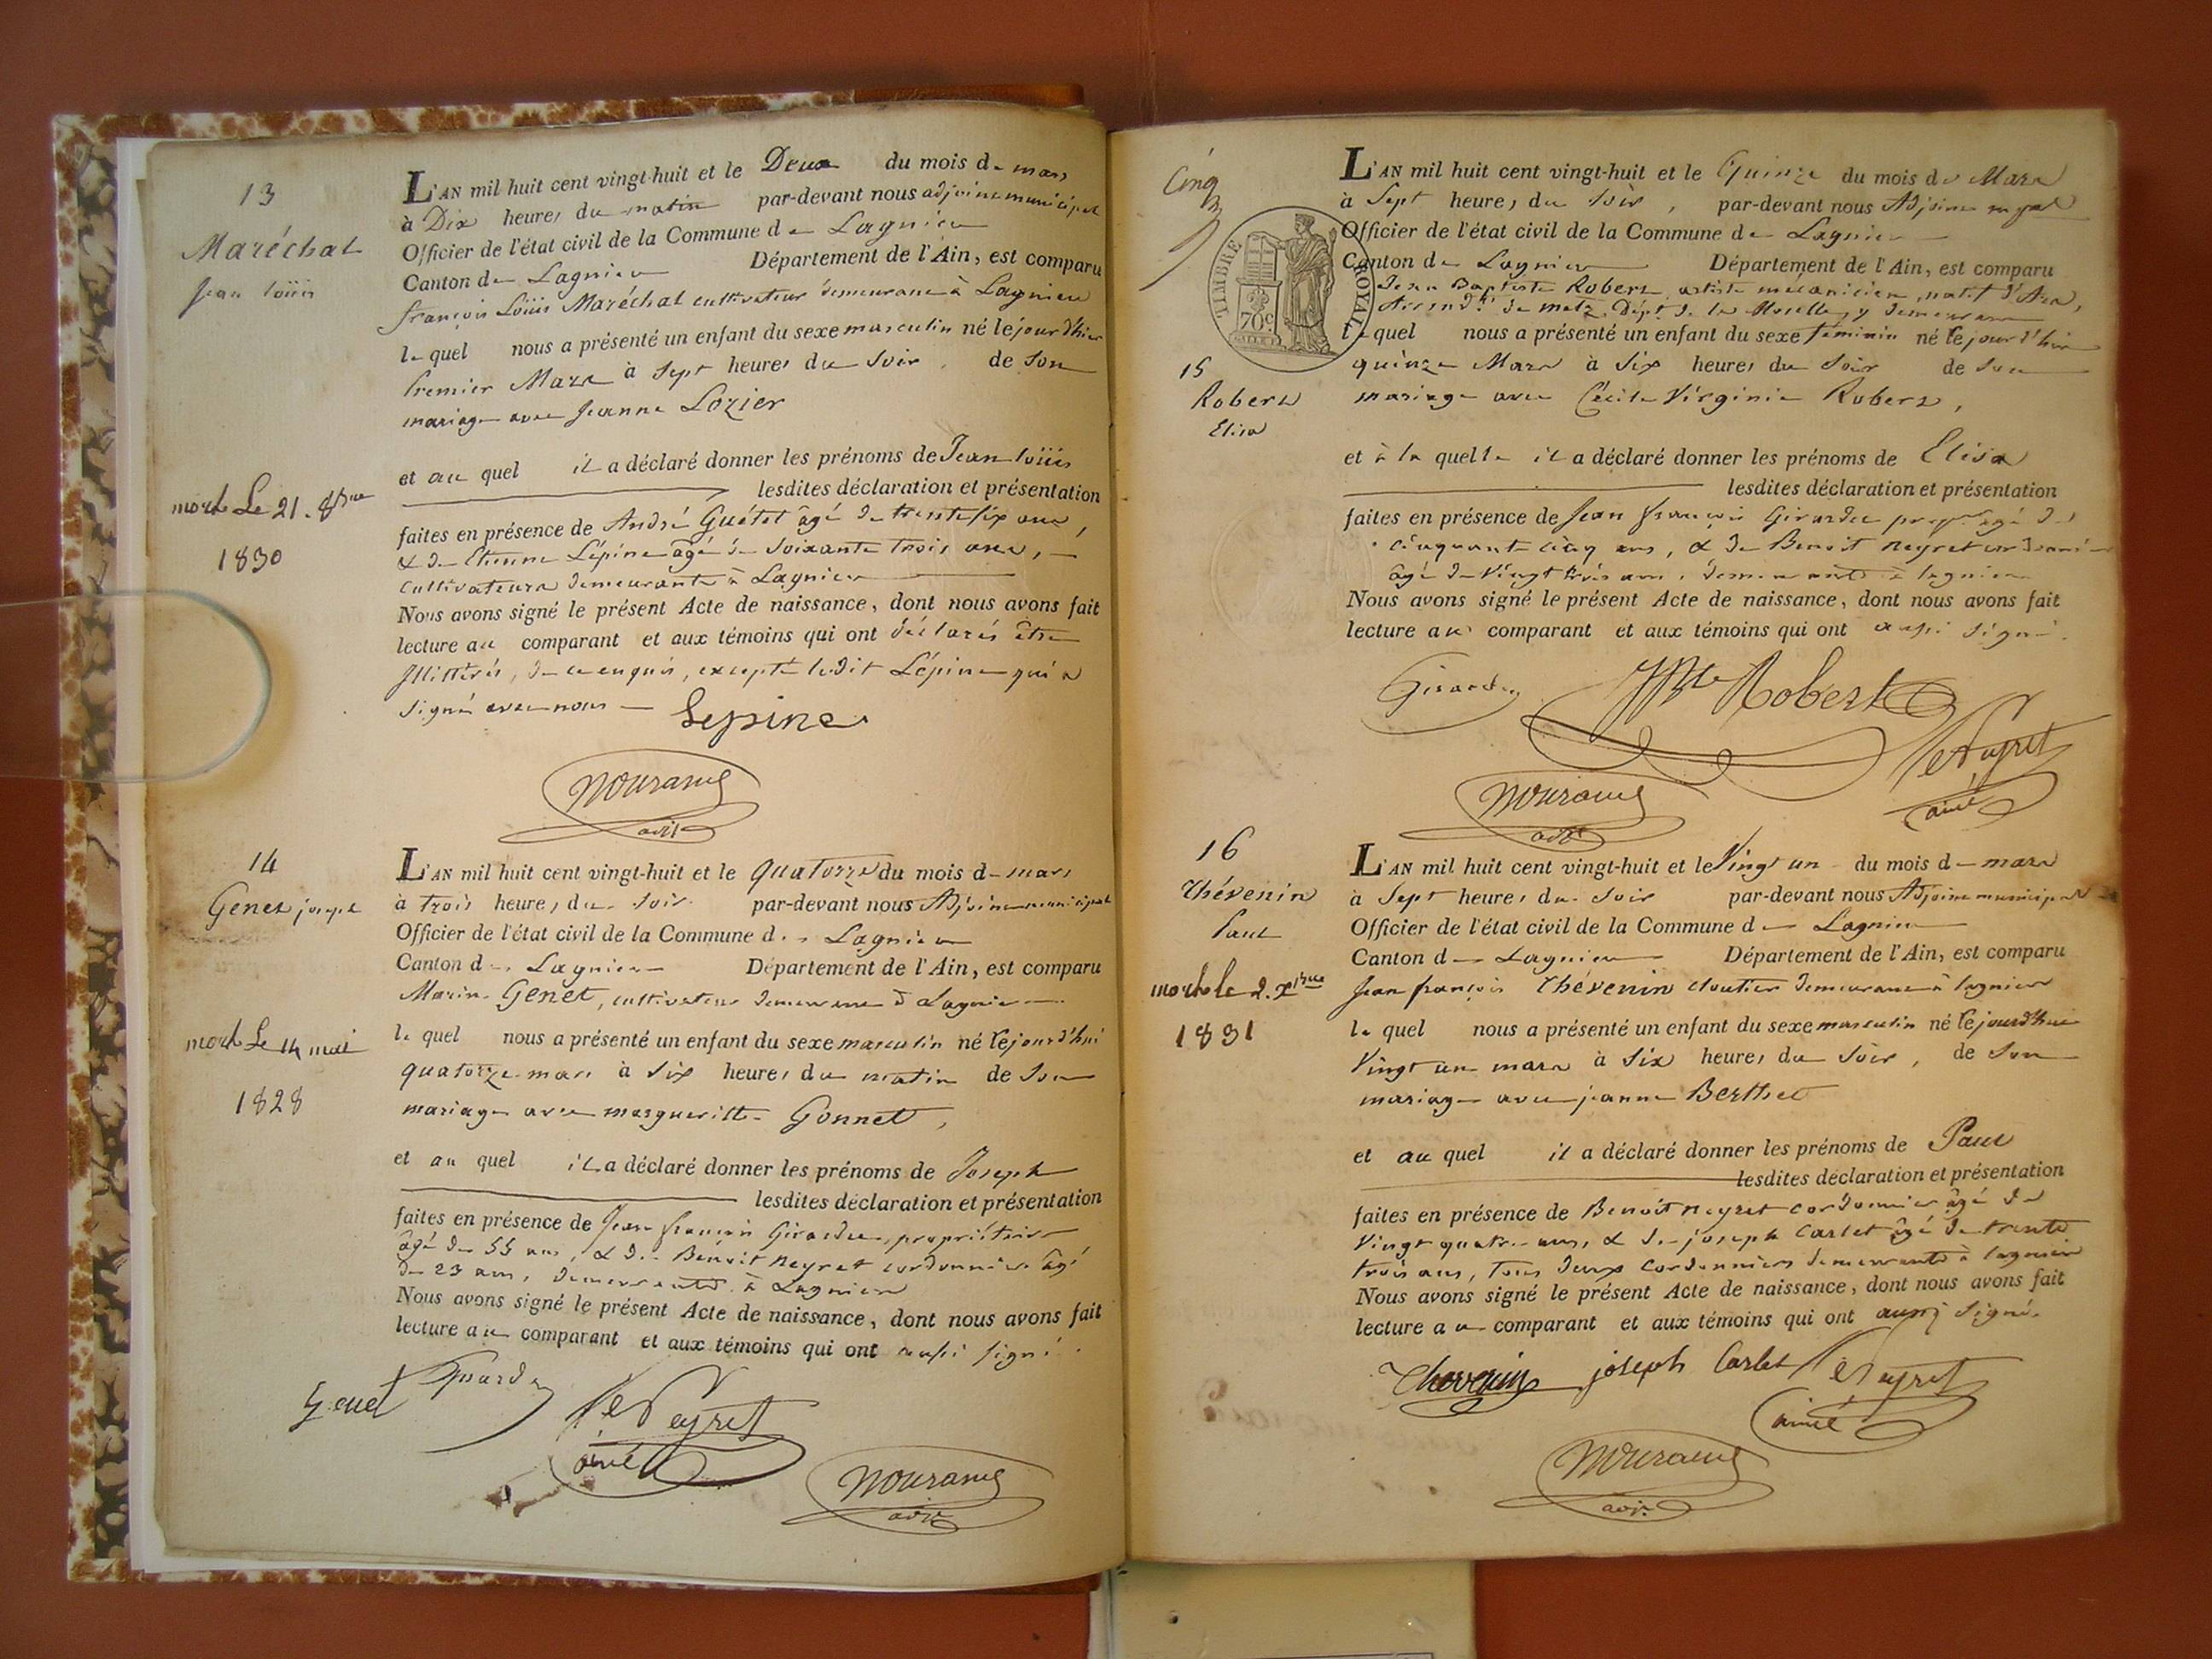 13
Maréchal
Jean Loüis
mort Le 21. 8bre
1830
L'AN mil huit cent vingt-huit et le Deux du mois de mars
à Dix heures du matin par-devant nous adjoint municipal
Officier de l'état civil de la Commune de Lagnieu
Canton de Lagnieu Département de l'Ain, est comparu
françois Loüis Maréchal cultivateur demeurant à Lagnieu
le quel nous a présenté un enfant du sexe masculin né le jour d'hier
Premier Mars à Sept heures du Soir, de Son
mariage avec Jeanne Lozier
et au quel il a déclaré donner les prénoms de Jean Loüis
lesdites déclaration et présentation
faites en présence de André Guétet âgé de trente six ans,
& de Etienne Lépine âgé de Soixante trois ans,
cultivateurs demeurants à Lagnieu
Nous avons signé le présent Acte de naissance, dont nous avons fait
lecture au comparant et aux témoins qui ont déclarés être
Illittérés, de ce enquis, excepté ledit Lépine qui a
Signé avec nous
Lepine
adjt
14
Genet joseph
mort Le 14 mai
1828
L'AN mil huit cent vingt-huit et le quatorze du mois de mars
à trois heures du Soir par-devant nous Adjoint municipal
Officier de l'état civil de la Commune de Lagnieu
Canton de Lagnieu Département de l'Ain, est comparu
Marin Genet, cultivateur demeurant à Lagnieu
le quel nous a présenté un enfant du sexe masculin né le jourd'hui
quatorze mars à Six heures du matin de Son
mariage avec margueritte Gonnet,
et au quel il a déclaré donner les prénoms de Joseph
lesdites déclaration et présentation
faites en présence de Jean françois Girardet, propriétaire
âgé de 55 ans, & de Benoit Neyret cordonnier âgé
de 23 ans, demeurants à Lagnieu
Nous avons signé le présent Acte de naissance, dont nous avons fait
lecture au comparant et aux témoins qui ont aussi signé.
Genet
Neyret
ainé
adjt
Cinq
TIMBRE ROYAL
70c.
15
Robert
Elisa
L'AN mil huit cent vingt-huit et le Quinze du mois de Mars
à Sept heures du Soir, par-devant nous Adjoint mpal
Officier de l'état civil de la Commune de Lagnieu
Canton de Lagnieu Département de l'Ain, est comparu
Jean Baptiste Robert, artiste mécanicien, natif d'Ars,
Arrondt de metz, Dépt de la Moselle, y demeurant
le quel nous a présenté un enfant du sexe féminin né le jourd'hui
quinze Mars à Six heures du Soir de Son
mariage avec Cécile Virginie Robert,
et à la quelle il a déclaré donner les prénoms de Elisa
lesdites déclaration et présentation
faites en présence de Jean françois Girardet propre âgé de
cinquante cinq ans, & de Benoit Neyret cordonnier
âgé de Vingt trois ans, demeurants à lagnieu
Nous avons signé le présent Acte de naissance, dont nous avons fait
lecture au comparant et aux témoins qui ont aussi signé.
Robert
Neyret
ainé
adjt
16
Thévenin
Paul
mort le 2. Xbre
1831
L'AN mil huit cent vingt-huit et le Vingt un du mois de mars
à Sept heures du Soir par-devant nous Adjoint municipal
Officier de l'état civil de la Commune de Lagnieu
Canton de Lagnieu Département de l'Ain, est comparu
Jean françois Thévenin cloutier demeurant à lagnieu
le quel nous a présenté un enfant du sexe masculin né le jourd'hui
Vingt un mars à Six heures du Soir, de Son
mariage avec jeanne Berthet
et au quel il a déclaré donner les prénoms de Paul
lesdites déclaration et présentation
faites en présence de Benoit Neyret cordonnier âgé de
Vingt quatre ans, & de joseph Carlet âgé de trente
trois ans, tous deux cordonniers demeurants à lagnieu
Nous avons signé le présent Acte de naissance, dont nous avons fait
lecture au comparant et aux témoins qui ont aussi signé.
Thevenin joseph Carlet Neyret
ainé
adjt